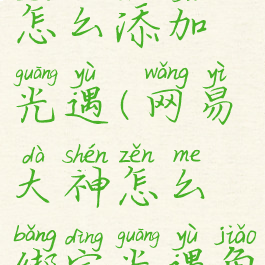 怎么添加
guāng yù wǎng yì
光遇(网易
dà shén zěn me
大神怎么
bǎng dìng guāng yù jiǎo
绑定光遇角